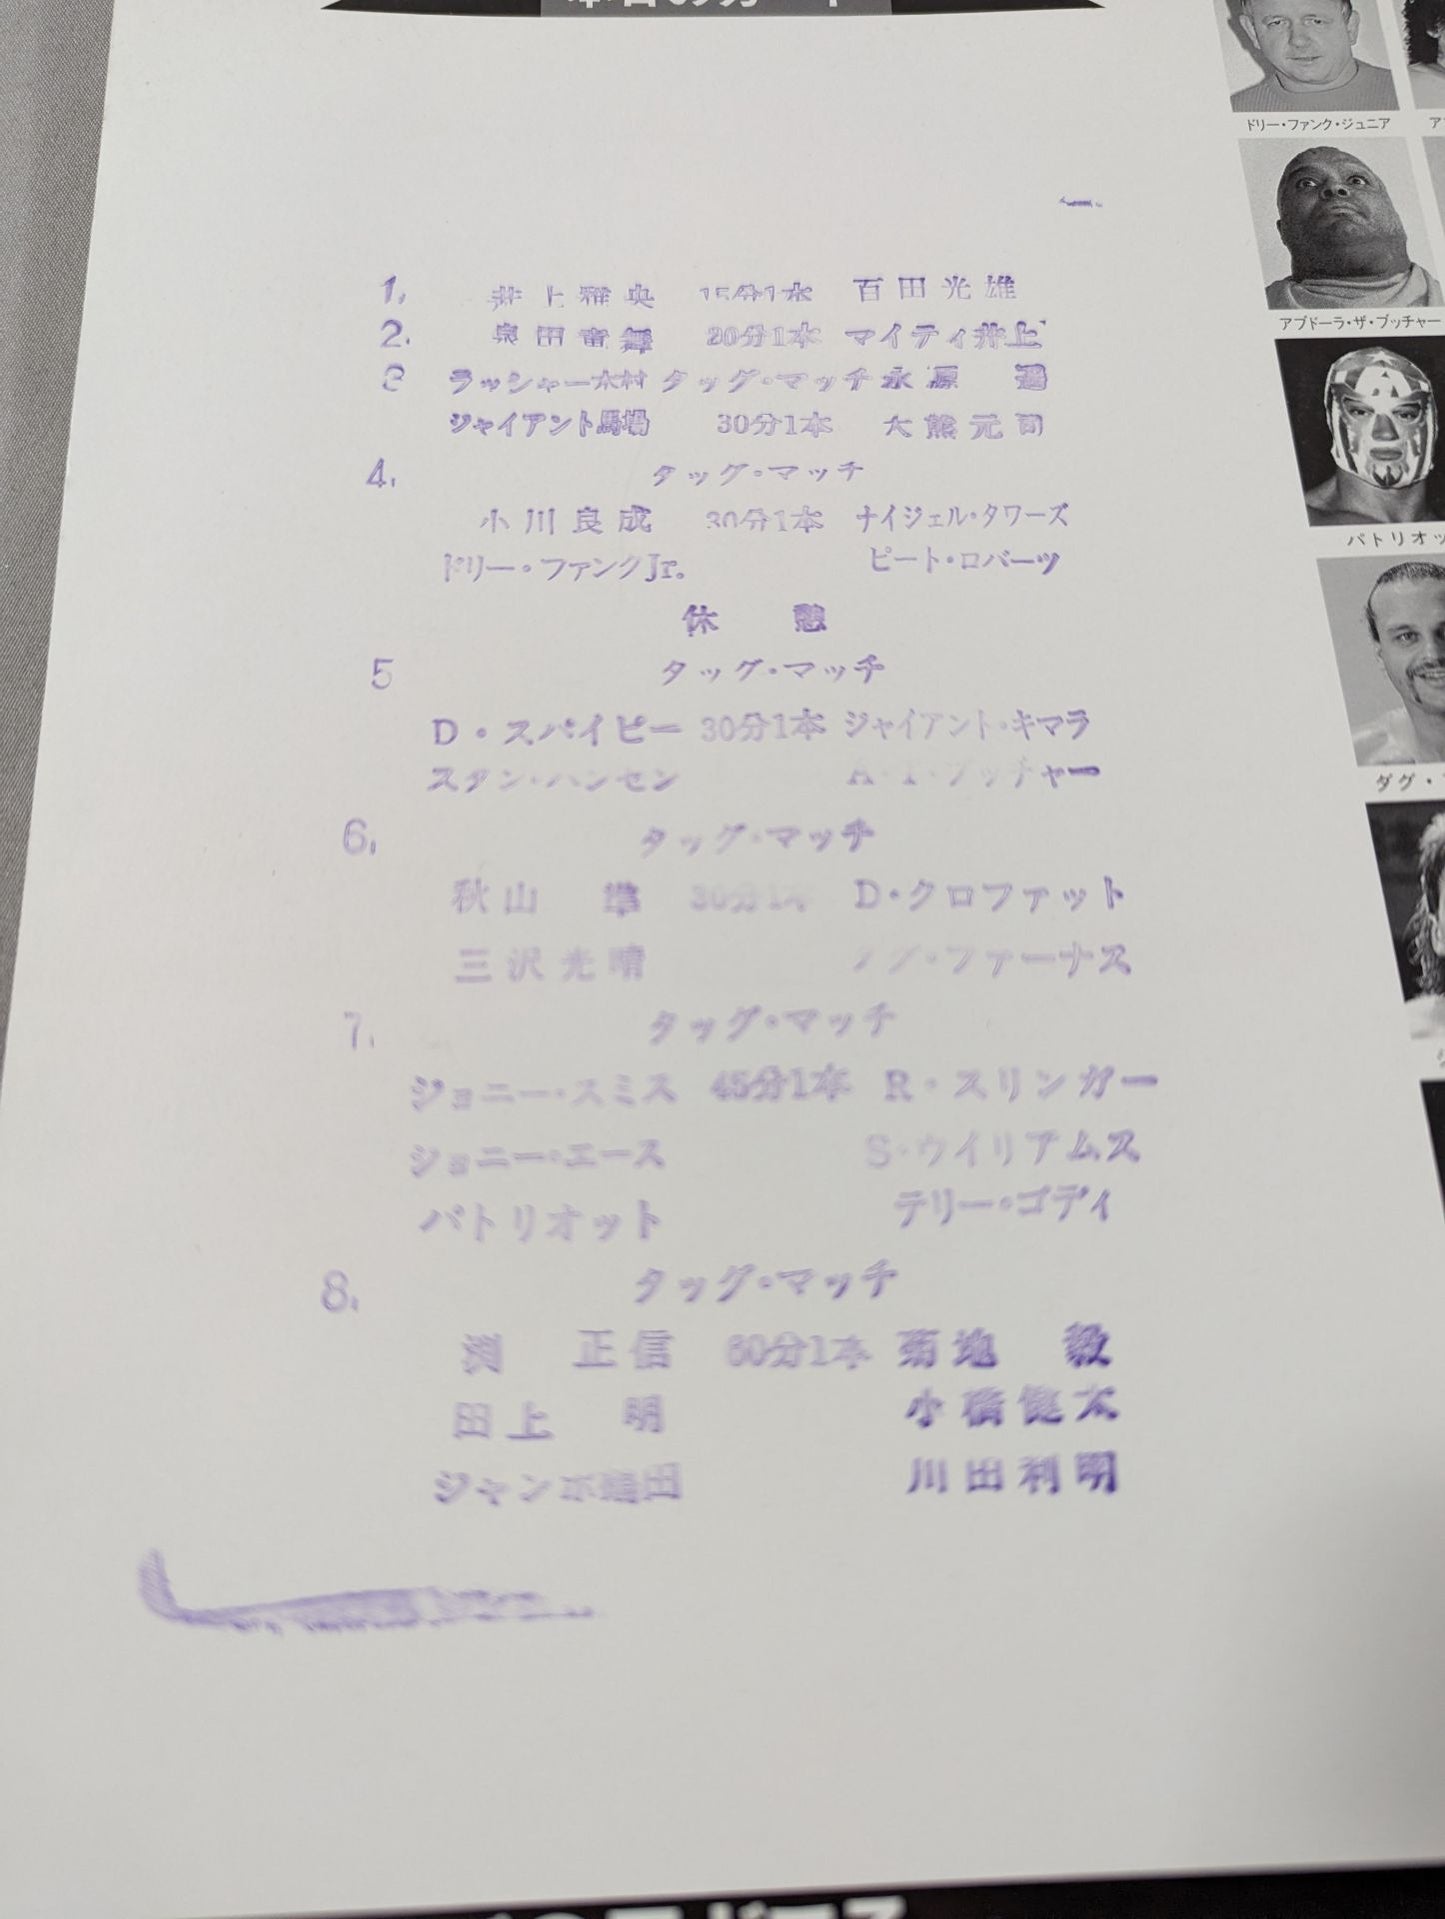 本日のカード
1. 井上雅央 15分1本 百田光雄
2. 泉田竜舞 20分1本 マイティ井上
3 ラッシャー木村 タッグ・マッチ 永源 遥
ジャイアント馬場 30分1本 大熊元司
4. タッグ・マッチ
小川良成 30分1本 ナイジェル・タワーズ
ドリー・ファンクJr. ピート・ロバーツ
休 憩
5 タッグ・マッチ
D・スパイビー 30分1本 ジャイアント・キマラ
スタン・ハンセン A・T・ブッチャー
6. タッグ・マッチ
秋山 準 30分1本 D・クロファット
三沢光晴 ダグ・ファーナス
7. タッグ・マッチ
ジョニー・スミス 45分1本 R・スリンガー
ジョニー・エース S・ウイリアムス
パトリオット テリー・ゴディ
8. タッグ・マッチ
渕 正信 60分1本 菊地 毅
田上 明 小橋健太
ジャンボ鶴田 川田利明
ドリー・ファンク・ジュニア
アブドーラ・ザ・ブッチャー
パトリオッ
ダグ・